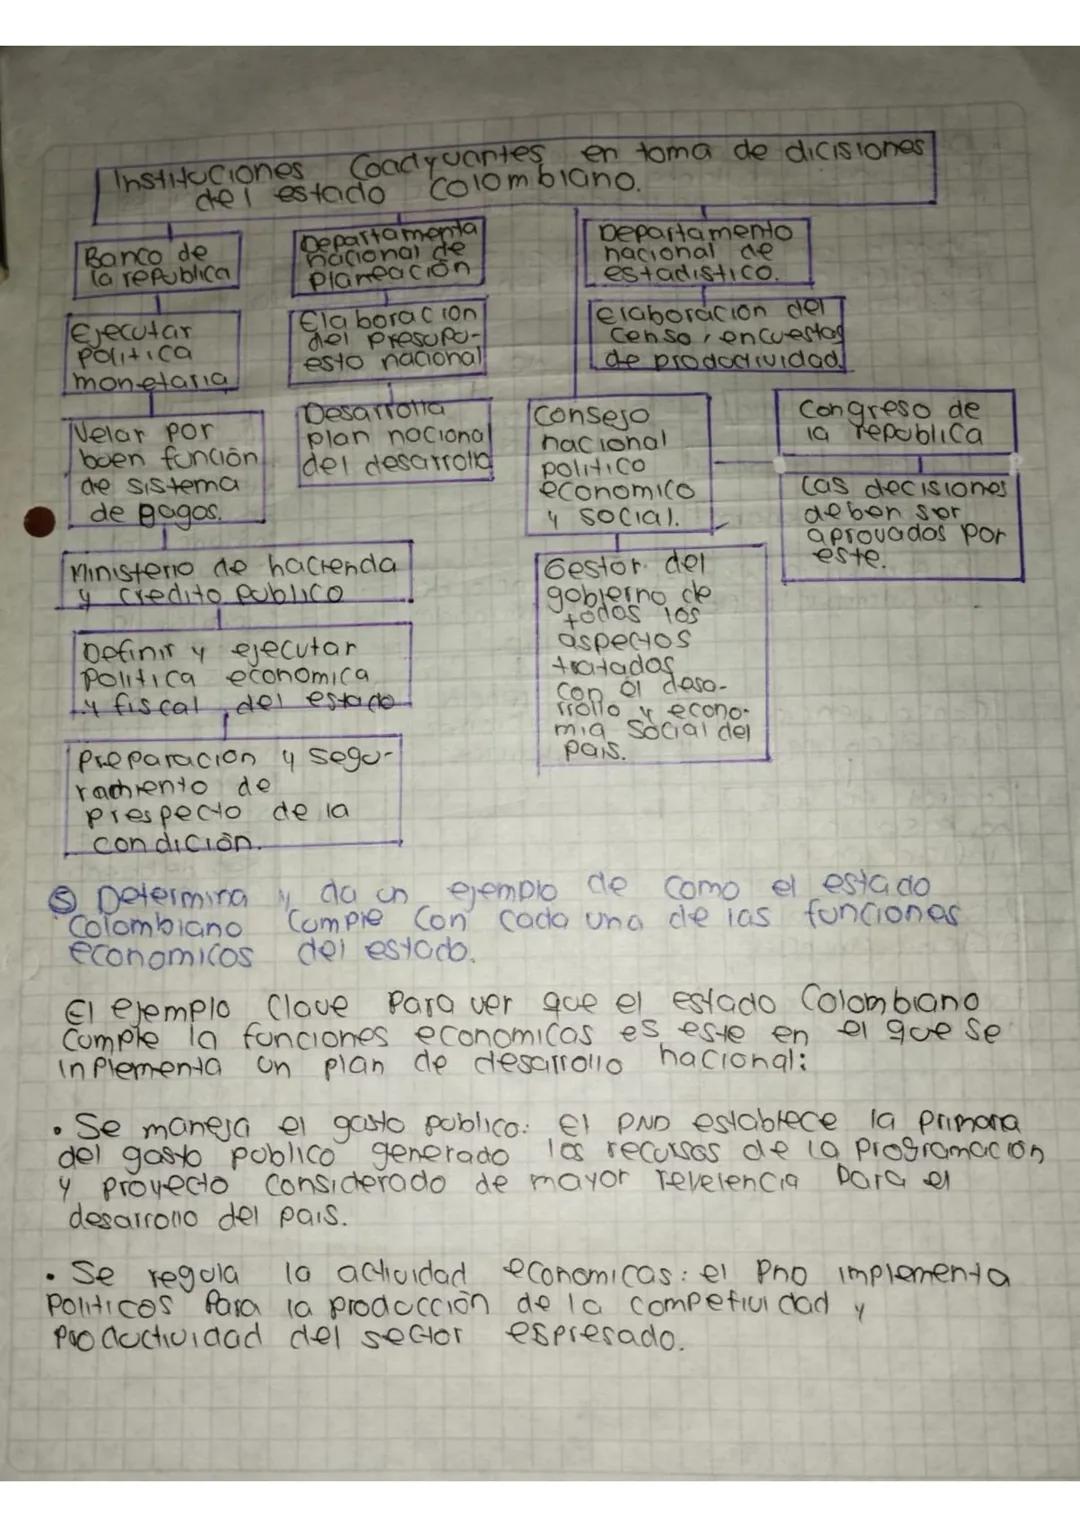 Instituciones Coadyuantes en toma de dicisiones
del estado Colombiano.
Banco de
la republica
Ejecutar
politica
monetaria
Velar por
buen función
de sistema
de pagos.
Ministerio de hacienda
y credito publico
Definir y ejecutar
politica economica
y fiscal del estado
Preparación y segu-
ramiento de
prespecto de la
condición.
Departamento
nacional de
planeación
Elaboracion
del presupu-
esto nacional
Desarrolla
plan nacional
del desarrollo
Departamento
nacional de
estadistico.
elaboración del
censo, encuestas
de productividad
Consejo
nacional
politico
economico
y social.
Gestor del
gobierno de
todos los
aspectos
tratados
con el desa-
rrollo y econo-
mia social del
pais.
Congreso de
la republica
Las decisiones
deben ser
aprovados por
este.
⑤ Determina y da un ejemplo de como el estado
Colombiano cumple con cada una de las funciones
economicos del estado.
El ejemplo clave para ver que el estado Colombiano
cumple la funciones economicas es este en el que se
inplementa un plan de desarrollo nacional:
• Se maneja el gasto publico: El PND establece la primera
del gasto publico generado los recursos de la programación
y proyecto considerado de mayor revelencia para el
desarrollo del pais.
• Se regula la actividad economicas: el PND implementa
politicos para la producción de la competividad y
productividad del sector espresado.